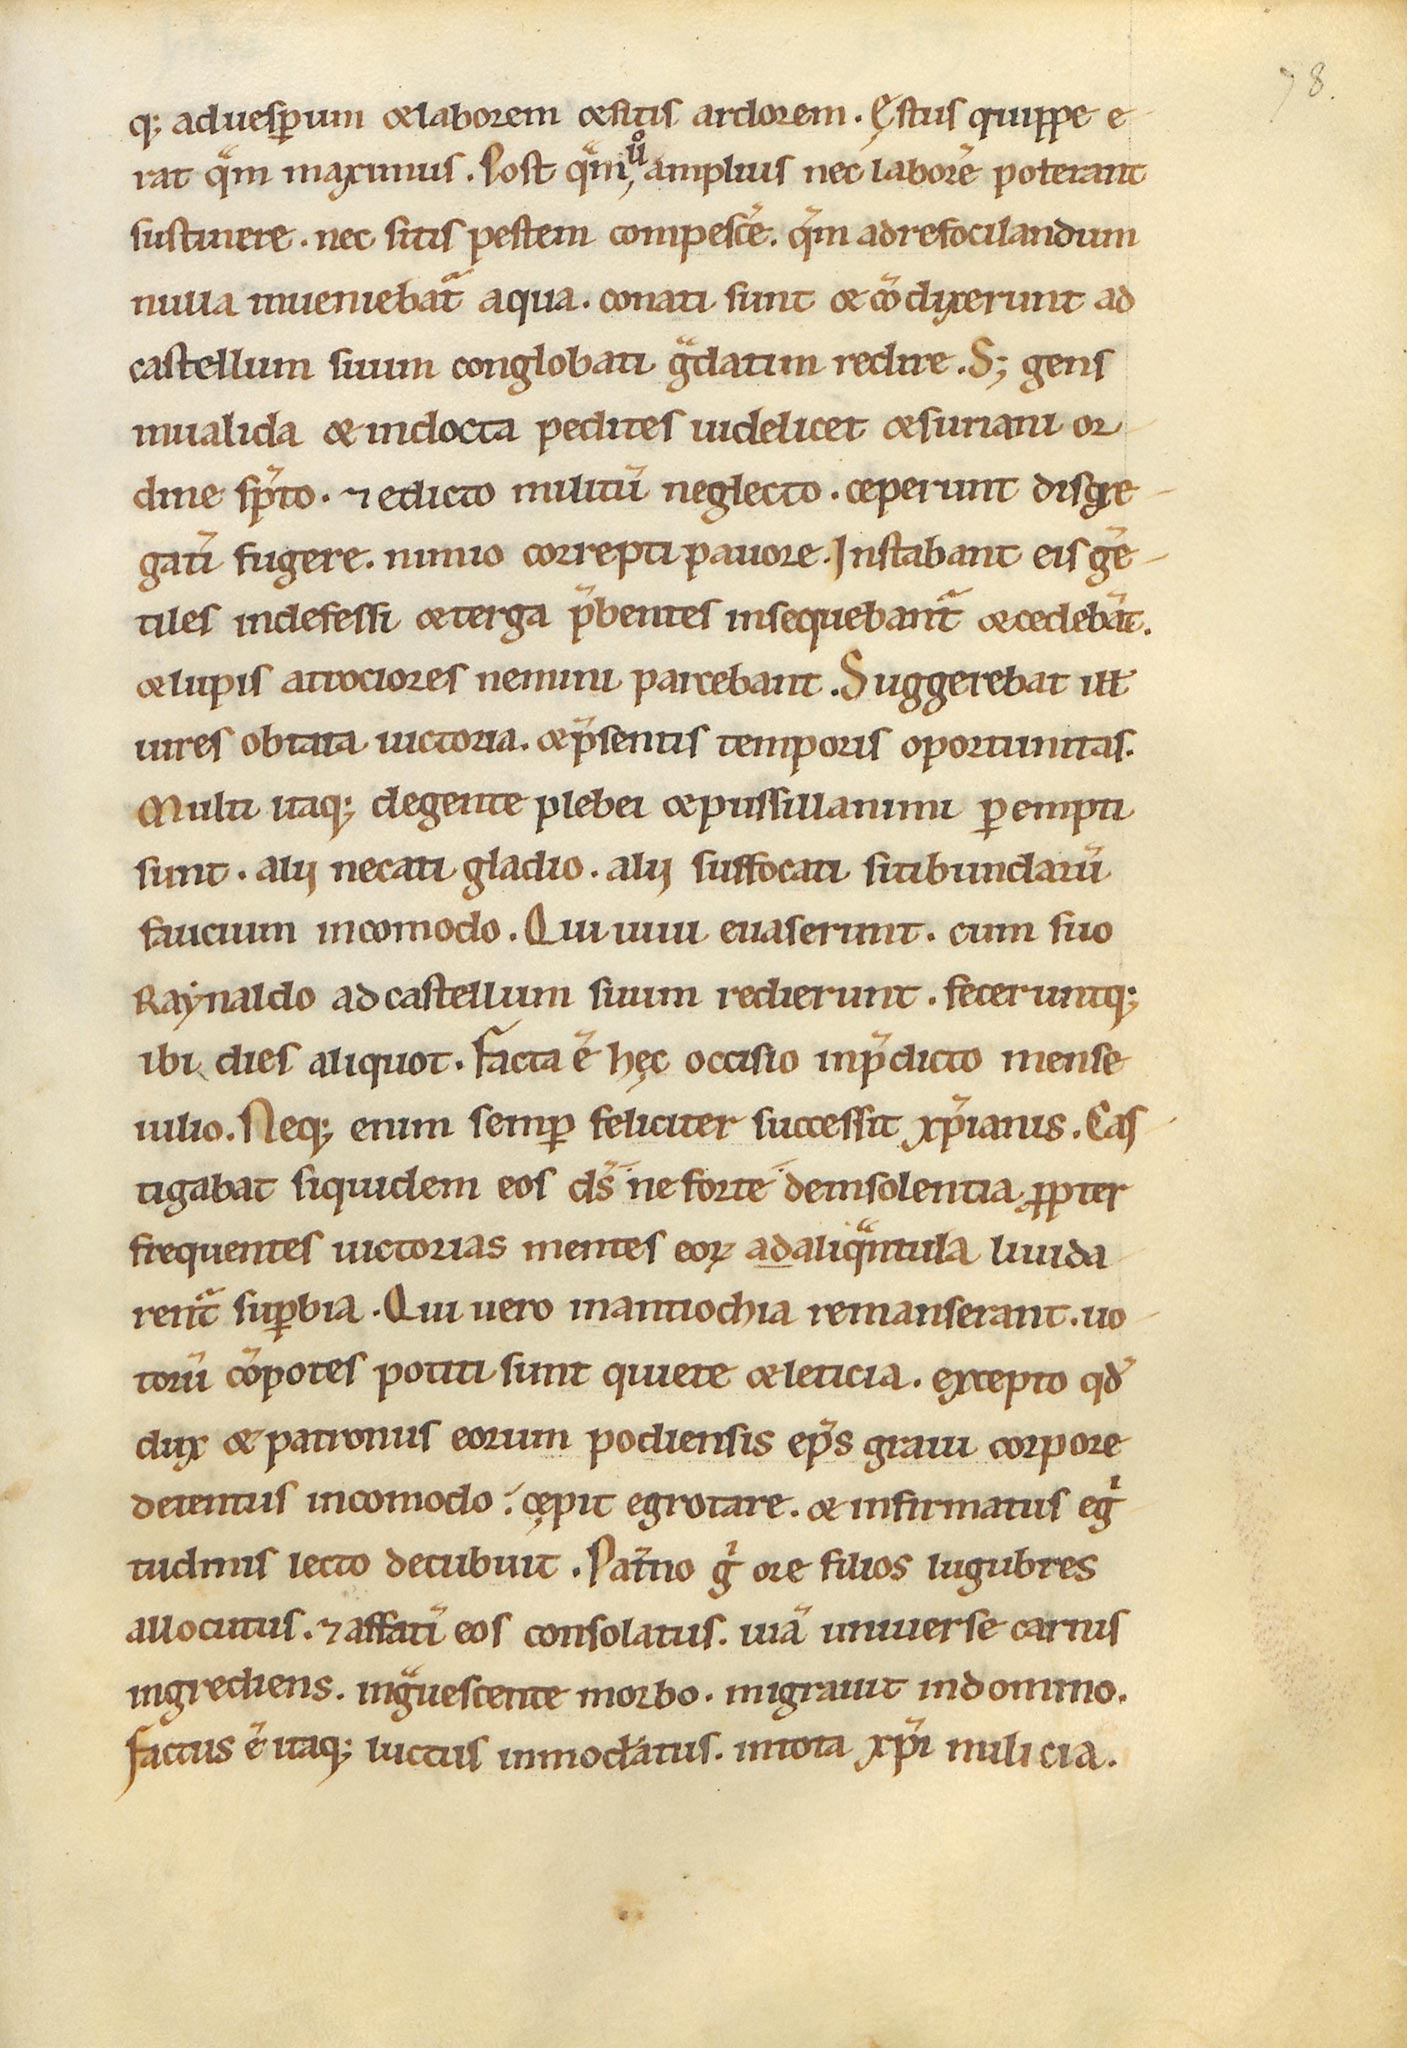 78.
q; aduesꝑum &laborem &sitis ardorem. Ęstus quippe e-
rat qᷓm maximus. Post qᷓm, uͦ amplius nec laborē poterant
sustinere. nec sitis pestem compescē. qm̄ adrefocilandum
nulla inueniebat᷑ aqua. conati sunt & cōdixerunt ad
castellum suum conglobati gᷓdatim redire. S; gens
inualida & indocta pedites uidelicet &suriani or-
dine sp̄to. ⁊ edicto militū neglecto. ceperunt disgre-
gatī fugere. nimio correpti pauore. Instabant eis gē-
tiles indefessi &terga p̄bentes insequebant᷑ &cedebāt.
&lupis atrociores nemini parcebant. Suggerebat ill̄
uires obtata uictoria. &p̄sentis temporis oportunitas.
Multi itaq; degente plebei &pussillanimi ꝑempti
sunt. alij necati gladio. alij suffocati sitibundarū
faucium incomodo. Qui uiui euaserunt. cum suo
Raẏnaldo adcastellum suum redierunt. feceruntq;
ibi dies aliquot. Facta ē hęc occisio inp̄dicto mense
iulio. Neq; enim semꝑ feliciter successit xp̄ianis. Cas-
tigabat siquidem eos ds̄ ne forte deinsolentia ꝓpter
frequentes uictorias mentes eoꝝ adaliqᷓntula liuida
rent᷑ suꝑbia. Qui uero inantiochia remanserant. uo-
torū cōpotes potiti sunt quiete &leticia. excepto qd̄
dux & patronus eorum podiensis ep̄s graui corpore
detentus incomodo. cępit egrotare. & infirmatus egͥ
tudinis lecto decubuit. Pat̄no gͥ ore filios lugubres
allocutus. ⁊ affatī eos consolatus. uiā uniuerse carnis
ingrediens. ingᷓuescente morbo. migrauit indomino.
Factus ē itaq; luctus inmod̄atus. intota xp̄i milicia.